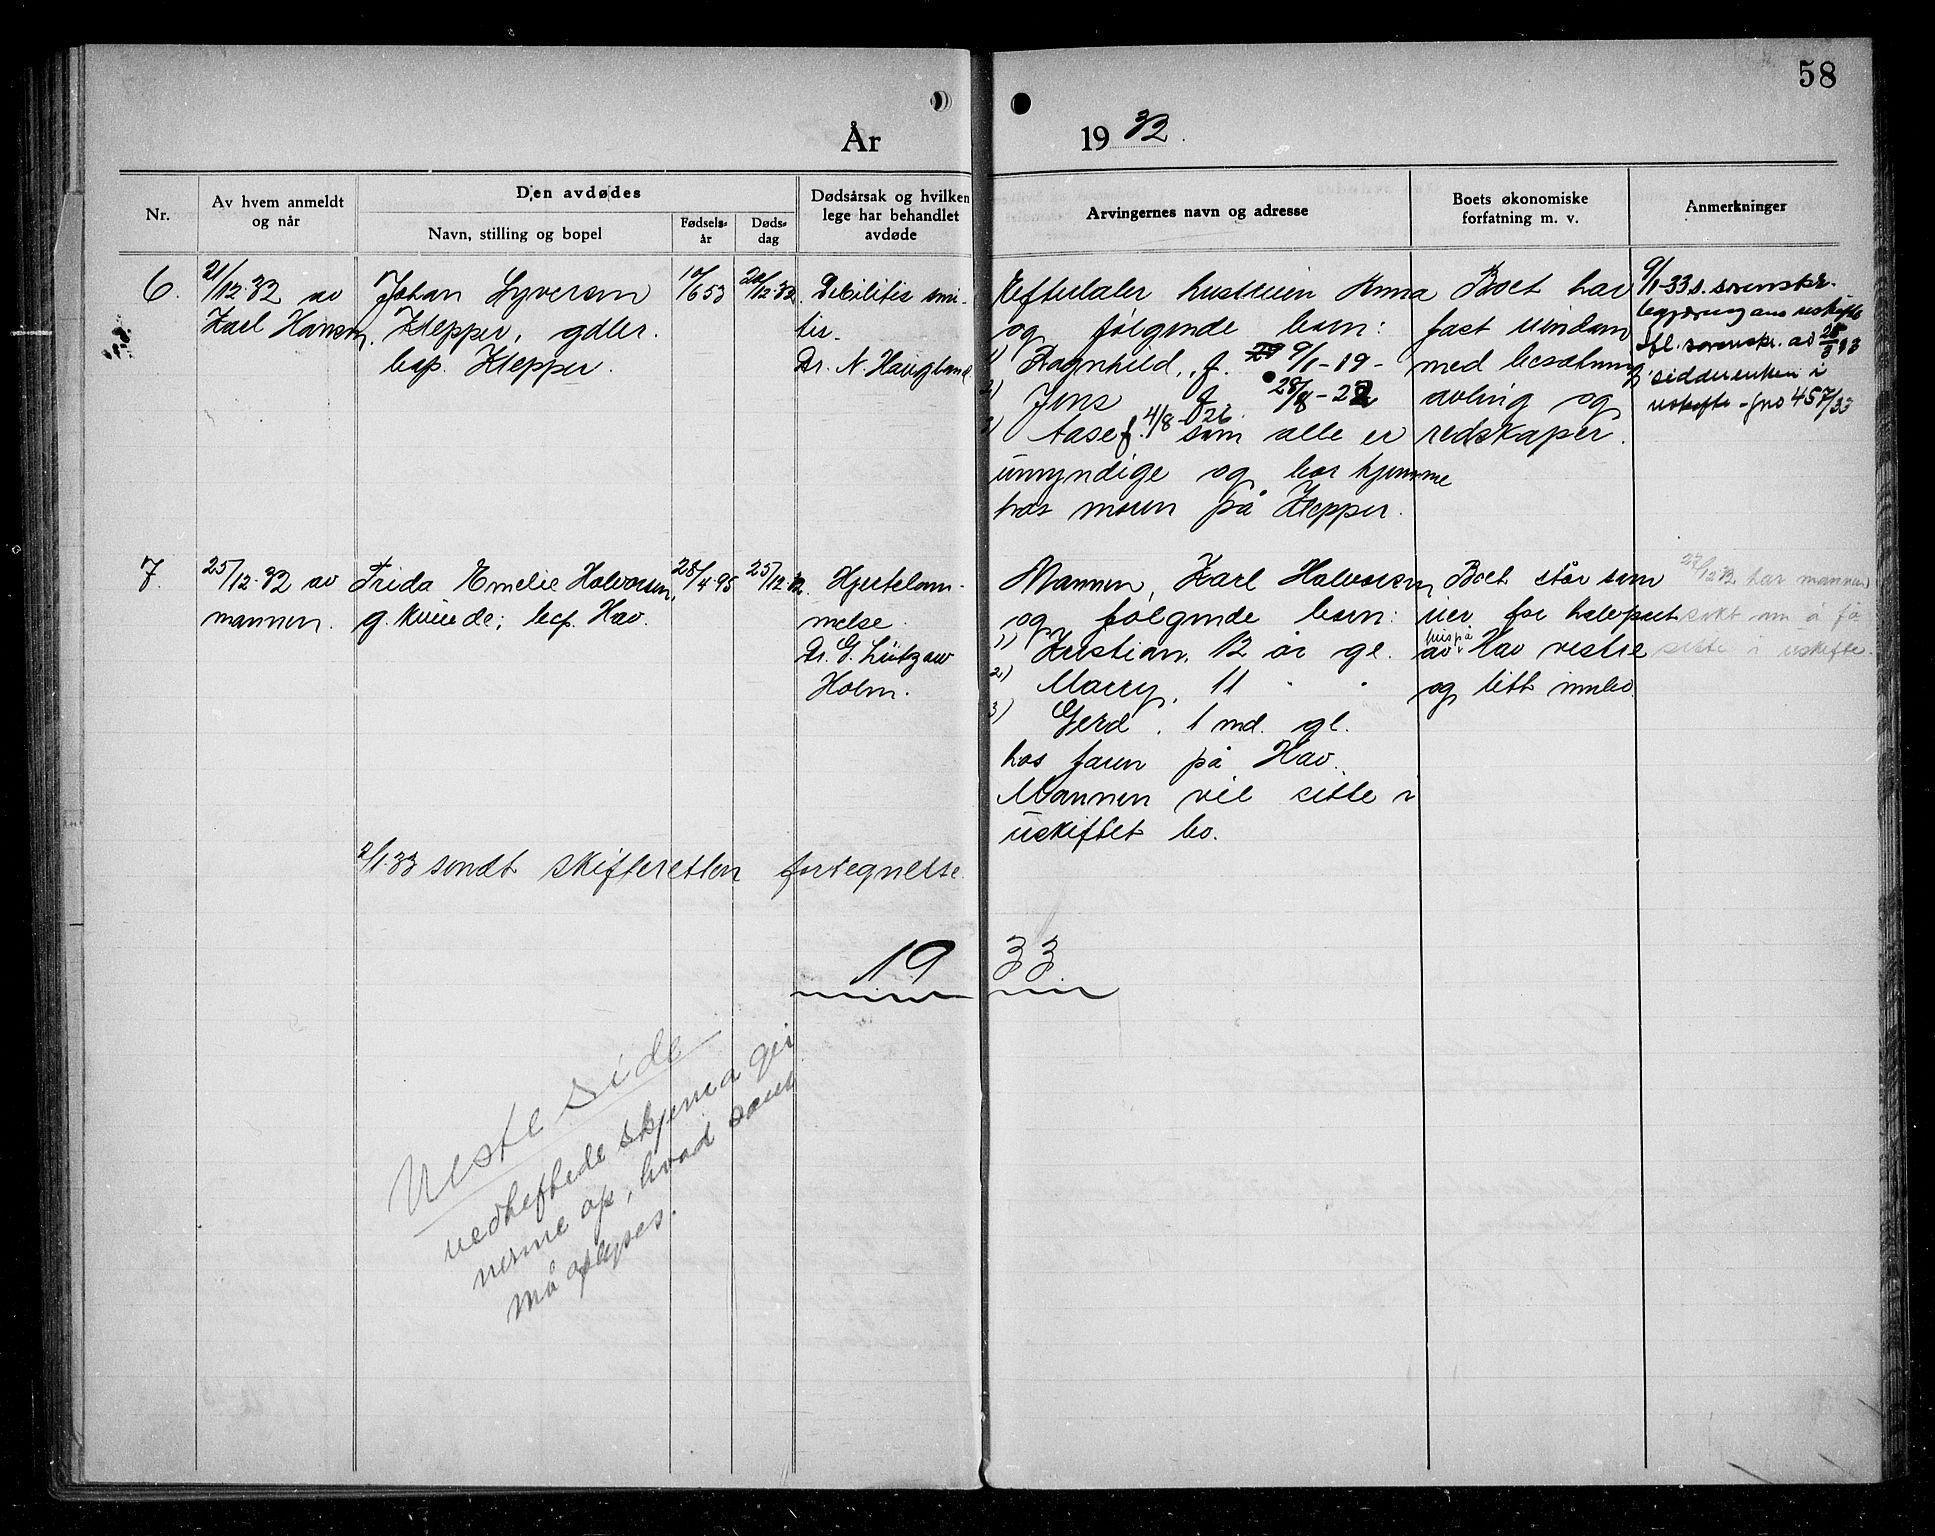 58
År 1932.
Nr.
Av hvem anmeldt
og når
Den avdødes
Navn, stilling og bopel
Fødsels-
år
Døds-
dag
Dødsårsak og hvilken
lege har behandlet
avdøde
Arvingernes navn og adresse
Boets økonomiske
forfatning m. v.
Anmerkninger
6.
21/12-32 av
Karl Hansen.
Johan Syversen
Klepper, gdbr.
bop. Klepper.
10/6 53
20/12-32.
Debilitis sni-
lis.
Dr. N. Haugland
Efterlater hustruen Anna
og følgende barn:
1) Ragnhild, f. 9/1-19-
2) Jens f 28/8-22
3) Aase f. 4/8-26 som alle er
umyndige og bor hjemme
hos moren på Klepper.
Boet har
fast eiendom
med besetning
avling og
redskaper.
9/1-33 s. sorenskr.
begjæring ans uskifte
ifl. sorenskr. av 25/3 33
sidder enken i
uskifte - jno 457/33
7.
25/12-32 av
mannen.
Frida Emelie Halvorsen,
g. kvinde; bop. Hav.
28/4-95
25/12-32.
Hjertelam-
melse.
Dr. G. Lützow
Holm.
Mannen, Karl Halvorsen
og følgende barn:
1) Kristian, 12 år gl.
2) Marry, 11 " "
3) Gerd, 1 md. gl.
hos faren på Hav.
Mannen vil sitte i
uskiftet bo.
Boet står som
eier for halvpart
av hus på Hav vestre
og litt innbo.
27/12 32 har mannen
søkt om å få
sitte i uskifte.
2/1-33 sendt skifteretten fortegnelse.
1933
Neste side
vedheftede skjema gir
nerme op, hvad som
må oplyses.